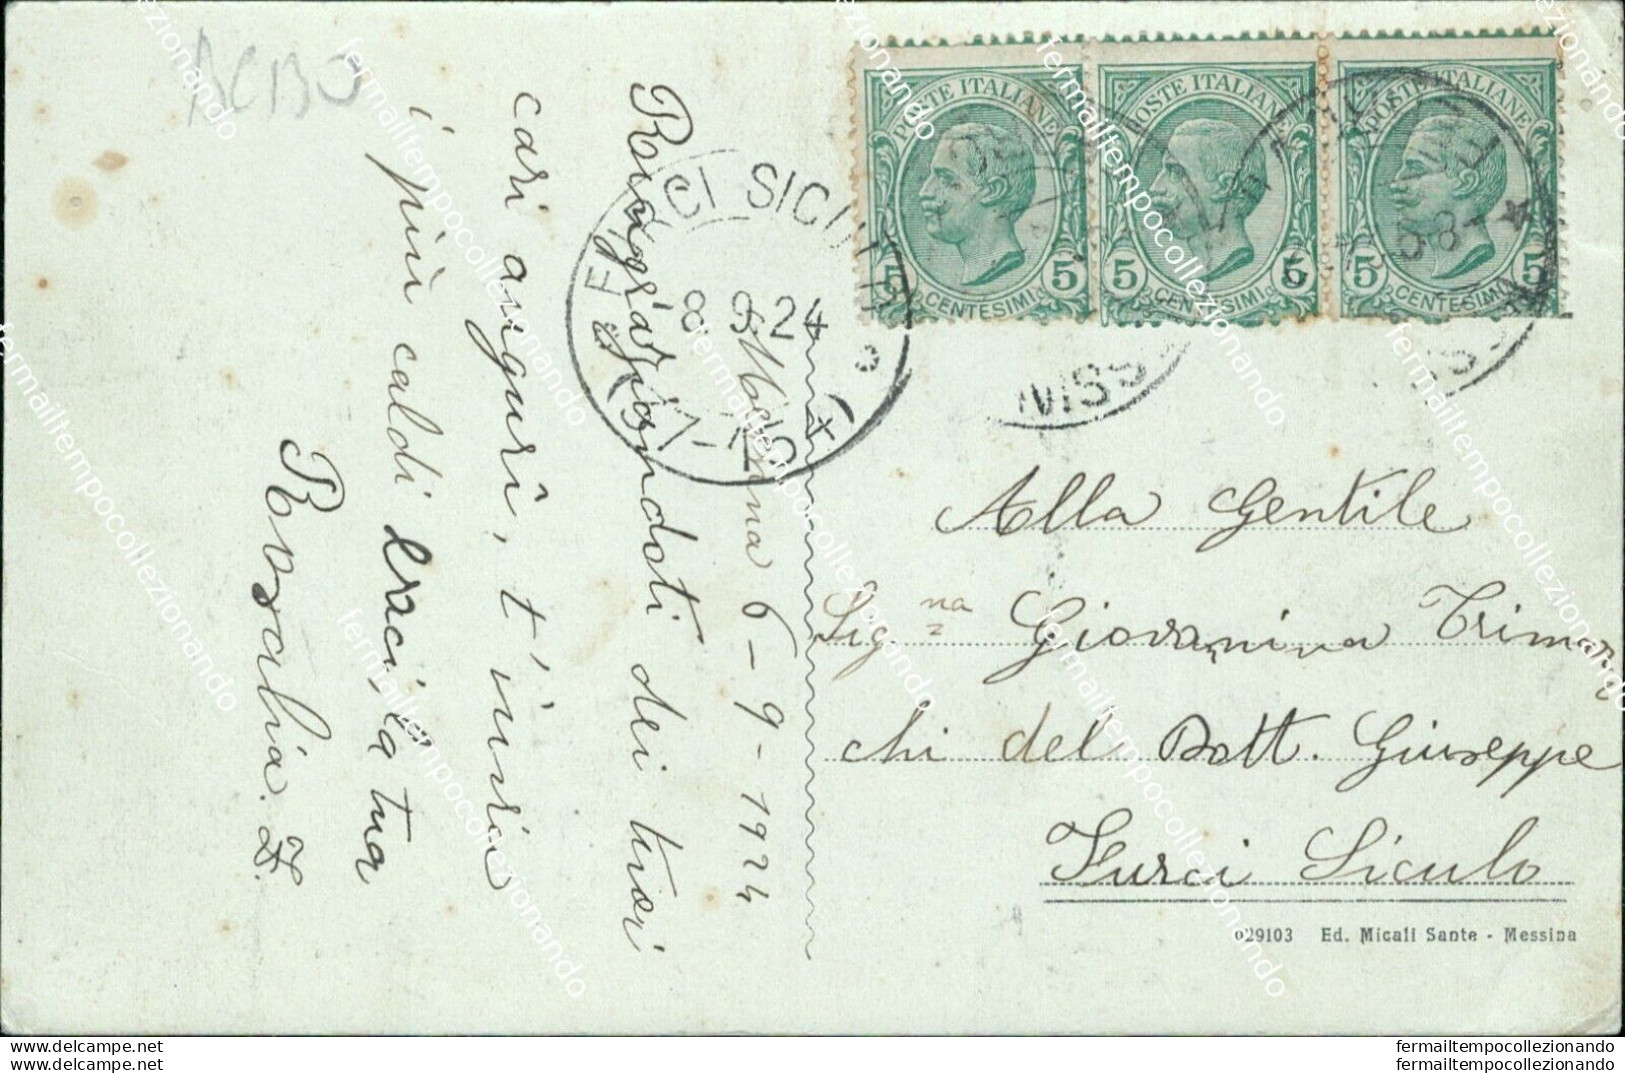 ACBO
Messina 6-9-1924
Ringraziandoti dei tuoi
cari auguri, t'invio
i più caldi baci, la tua
Rosalia. F.
FURCI SICULO
8 9 24
POSTE ITALIANE
5 CENTESIMI 5
POSTE ITALIANE
5 CENTESIMI 5
POSTE ITALIANE
5 CENTESIMI 5
Alla Gentile
Sig.na Giovannina Trimar
chi del Dott. Giuseppe
Furci Siculo
029103 Ed. Micali Sante - Messina
fermailtempocollezionando
www.delcampe.net
www.delcampe.net
fermailtempocollezionando
fermailtempocollezionando